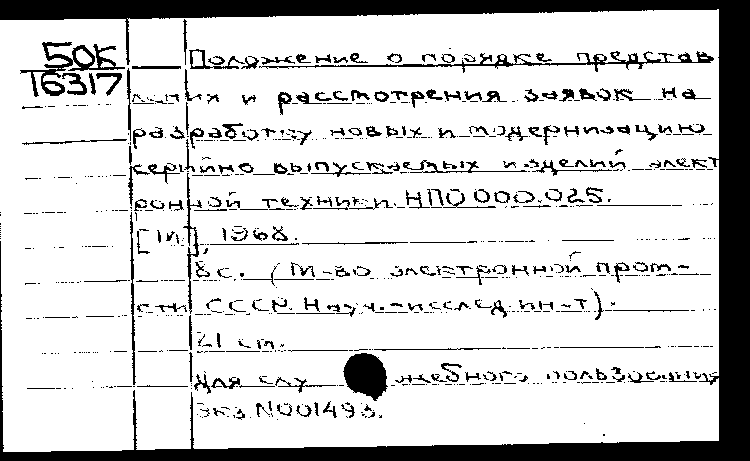 50К
16317
Положение о порядке представ
ления и рассмотрения заявок на
разработку новых и модернизацию
серийно выпускаемых изделий элект
ронной техники. НПО 000.025.
[М], 1968.
8с. (М-во электронной пром-
сти СССР. Науч.-исслед. ин-т).
21 см.
Для служебного пользования
Экз. N001493.